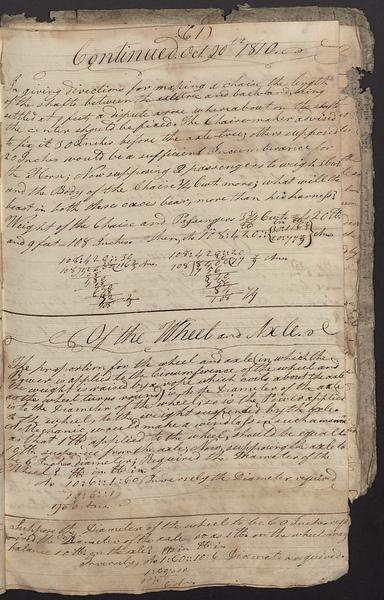 (61)
Continued Oct 20th 1810.
In giving directions for making a chaise, the length
of the shafts between the axletree and backband being
settled at 9 feet, a dispute arose whereabout on the shafts
the center should be fixed. The Chaisemaker advised
to fix it 30 Inches before the axle-tree; others supposed
20 Inches would be a sufficient Incumbrance for
the Horse; Now supposing 2 passengers to weigh 3 Cwt
and the Body of the Chaise 3/4 Cwt more; what will the
beast in both these cases bear, more than his harness?
Weight of the Chaise and Passengers 3 3/4 Cwt = 420 lb
and 9 feet = 108 Inches
108:420::30
108:420::20
Of the Wheel and Axle.
The proportion for the wheel and axle (in which the
power is applied to the circumference of the wheel and
the weight is raised by a rope which coils about the axle
as the wheel turns round) is as the Diameter of the axle
is to the Diameter of the wheel, so is the Power applied
to the wheel, to the weight suspended by the axle.
A Mechanic would make a windlass in such a manner
as that 1 lb applied to the wheel, should be equal to
10 lb suspended from the axle; Now supposing the axle to
be 6 Inches diameter; Required the Diameter of the
Wheel?
10:6::1:60 Inversely the Diameter required
Suppose the Diameter of the wheel to be 60 Inches required
the Diameter of the axle, so as 1 lb on the wheel may
balance 10 lb on the axle?
Inversely as 1:60::10:6 Diameter required.